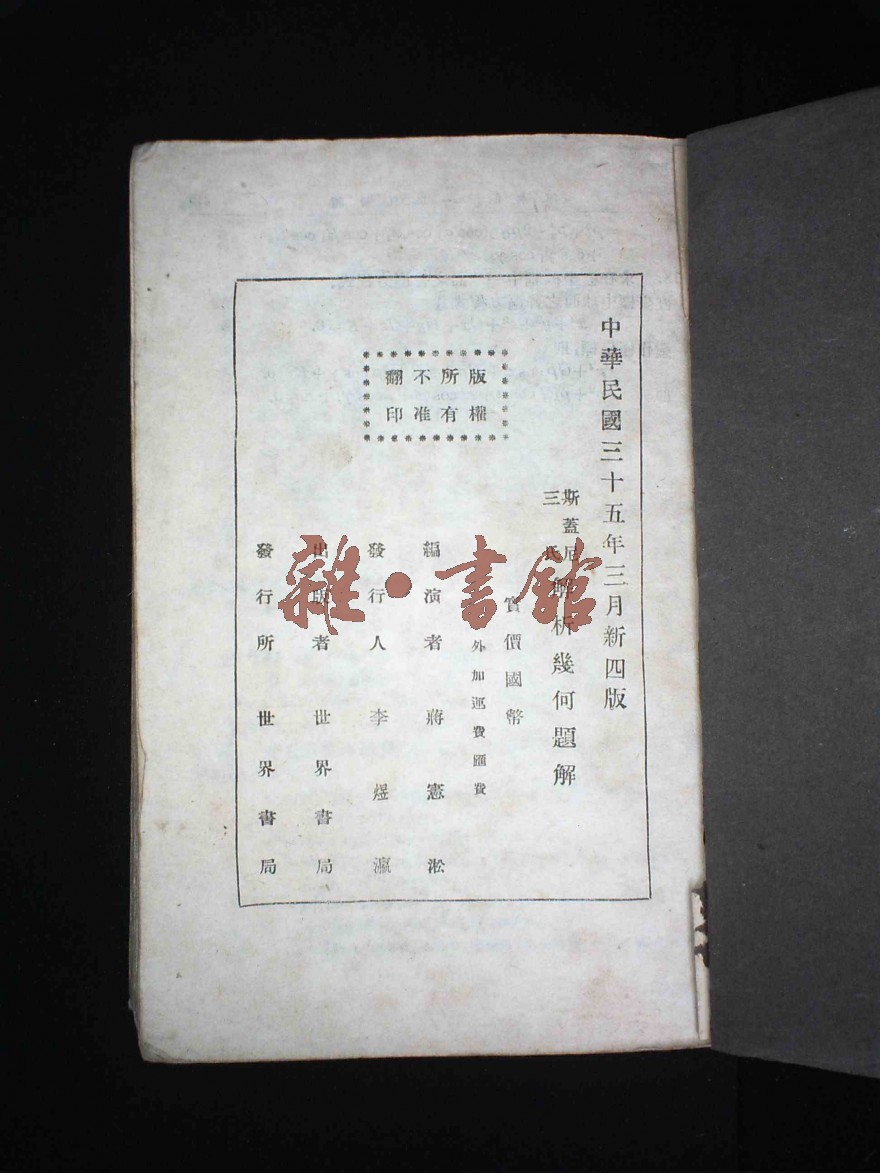 中華民國三十五年三月新四版
斯蓋尼三氏解析幾何題解
實價國幣
外加運費匯費
版權
所有
不准
翻印
編演者 蔣憲淞
發行人 李煜瀛
出版者 世界書局
發行所 世界書局
雜·書館